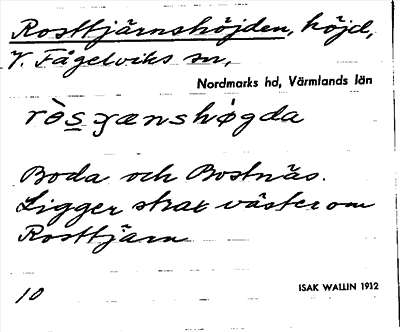 Rosttjärnshöjden, höjd,
V. Fågelviks sn,
Nordmarks hd, Värmlands län
ròsʒænshøgda
Boda och Bostnäs.
Ligger strax väster om
Rosttjärn
10
ISAK WALLIN 1932